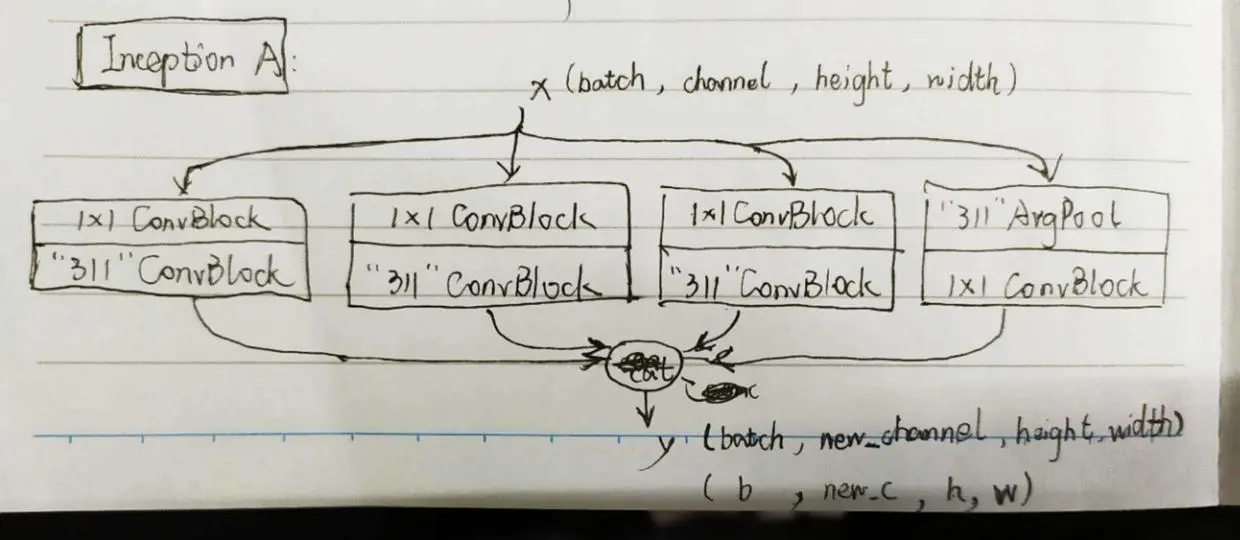 Inception A:
x (batch, channel, height, width)
1×1 ConvBlock
"311" ConvBlock
1×1 ConvBlock
"311" ConvBlock
1×1 ConvBlock
"311" ConvBlock
"311" AvgPool
1×1 ConvBlock
cat
y (batch, new_channel, height, width)
( b , new_c , h, w)